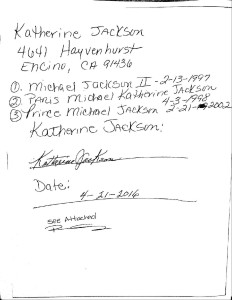 Katherine Jackson
4641 Hayvenhurst
Encino, CA 91436
①. Michael Jackson II - 2-13-1997
② Paris Michael Katherine Jackson
4-3-1998
③ Prince Michael Jackson 2-21-2002
Katherine Jackson:
Katherine Jackson
Date:
4-21-2016
see Attached